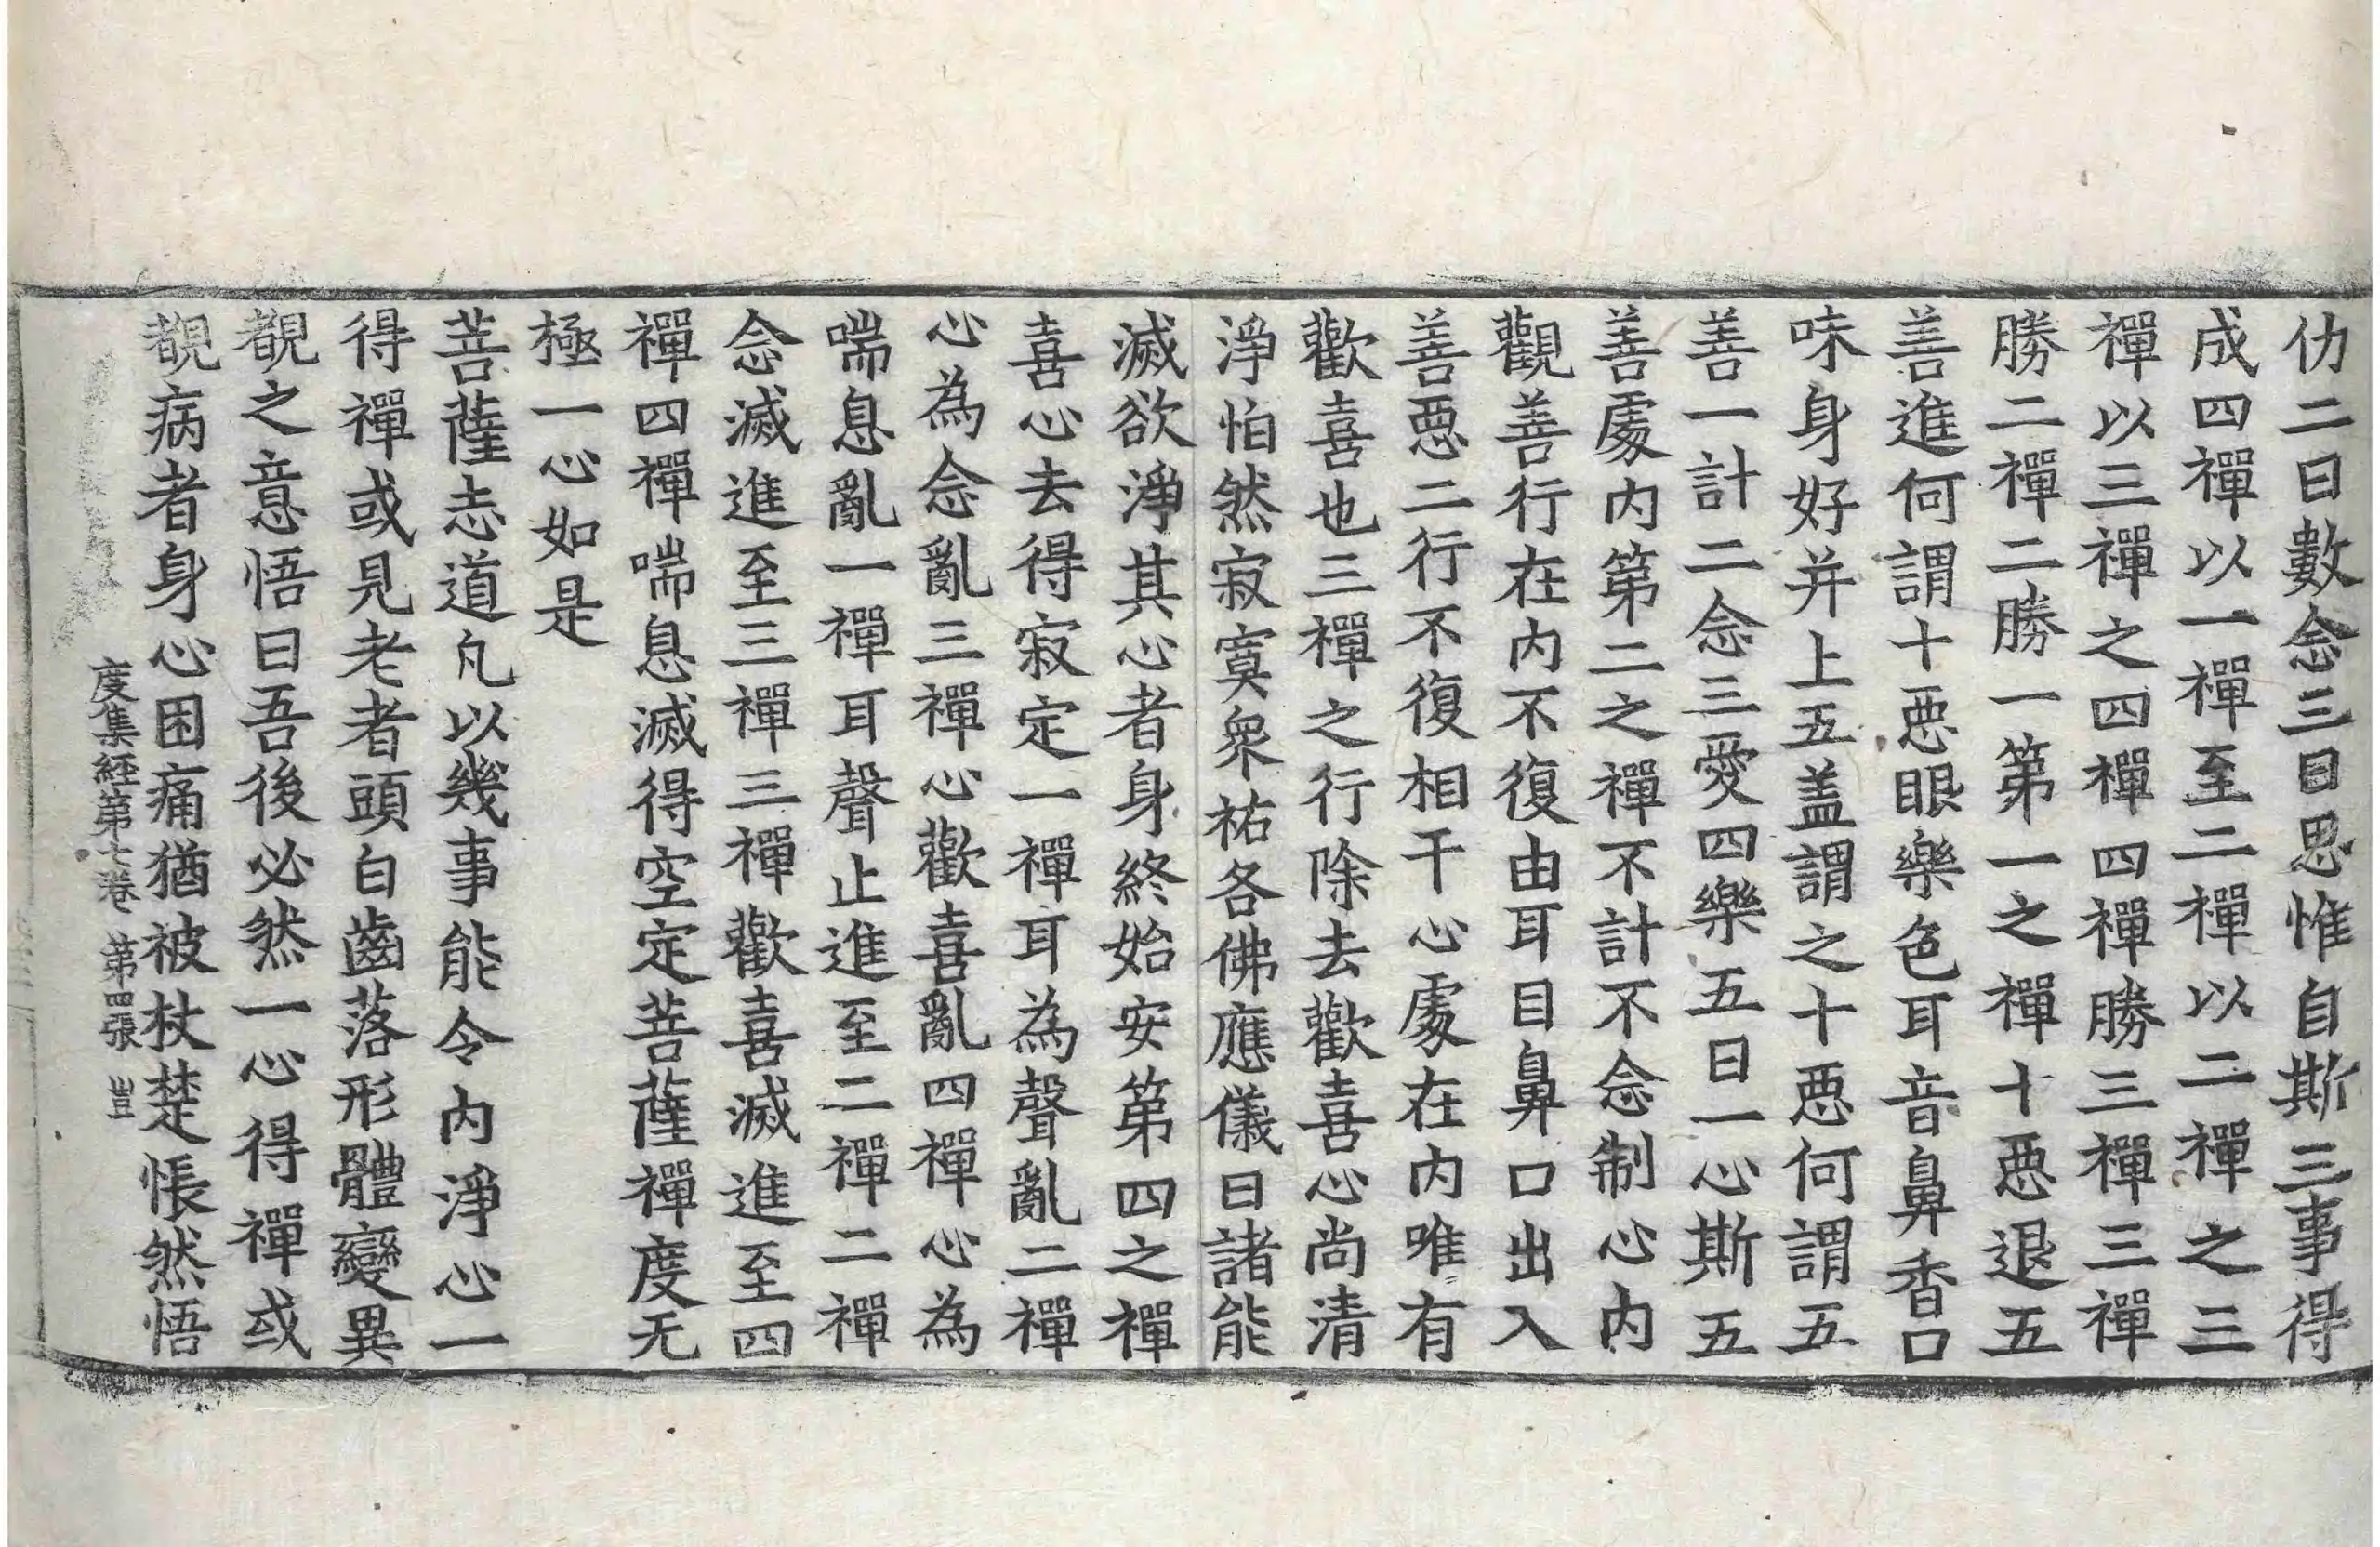 仂二曰數念三曰思惟自斯三事得
成四禪以一禪至二禪以二禪之三
禪以三禪之四禪四禪勝三禪三禪
勝二禪二勝一第一之禪十惡退五
善進何謂十惡眼樂色耳音鼻香口
味身好并上五盖謂之十惡何謂五
善一計二念三愛四樂五曰一心斯五
善處内第二之禪不計不念制心内
觀善行在内不復由耳目鼻口出入
善惡二行不復相干心處在内唯有
歡喜也三禪之行除去歡喜心尚清
淨怕然寂寞衆祐各佛應儀曰諸能
滅欲淨其心者身終始安第四之禪
喜心去得寂定一禪耳為聲亂二禪
心為念亂三禪心歡喜亂四禪心為
喘息亂一禪耳聲止進至二禪二禪
念滅進至三禪三禪歡喜滅進至四
禪四禪喘息滅得空定菩薩禪度无
極一心如是
菩薩志道凡以幾事能令内淨心一
得禪或見老者頭白齒落形體變異
覩之意悟曰吾後必然一心得禪或
覩病者身心困痛猶被杖楚悵然悟
度集経第七卷 第四張 豈